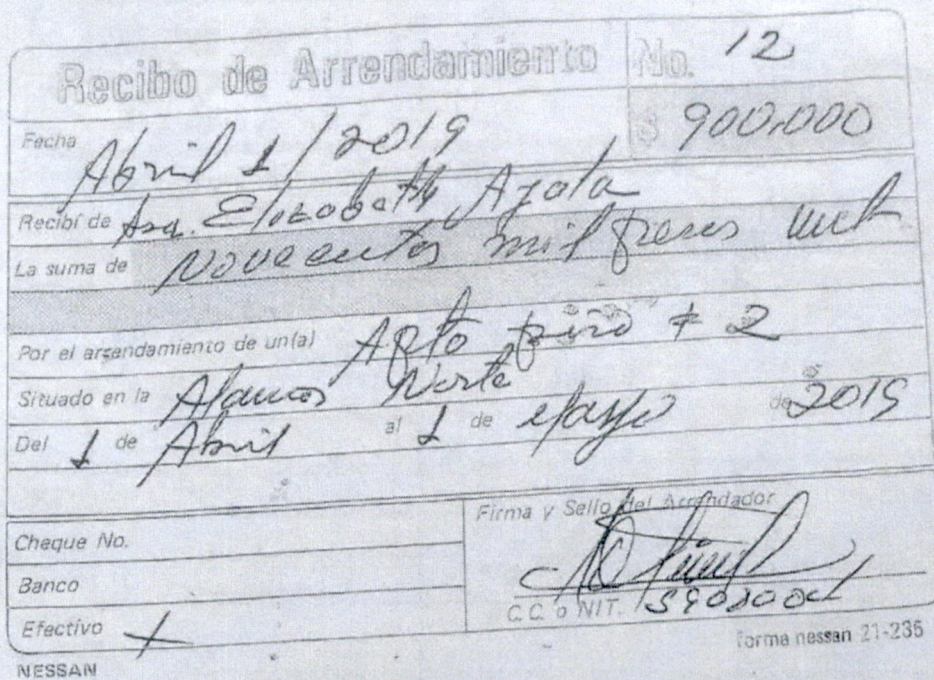 Recibo de Arrendamiento No. 12
Fecha Abril 1/2019 $ 900.000
Recibí de Sra. Elizabeth Ayala
La suma de Novecentos mil pesos mct
Por el arrendamiento de un(a) Apto piso # 2
Situado en la Alamos Norte
Del 1 de Abril al 1 de Mayo de 2019
Firma y Sello del Arrendador
Cheque No.
Banco
C.C. o NIT.
Efectivo X
forma nessan 21-235
NESSAN